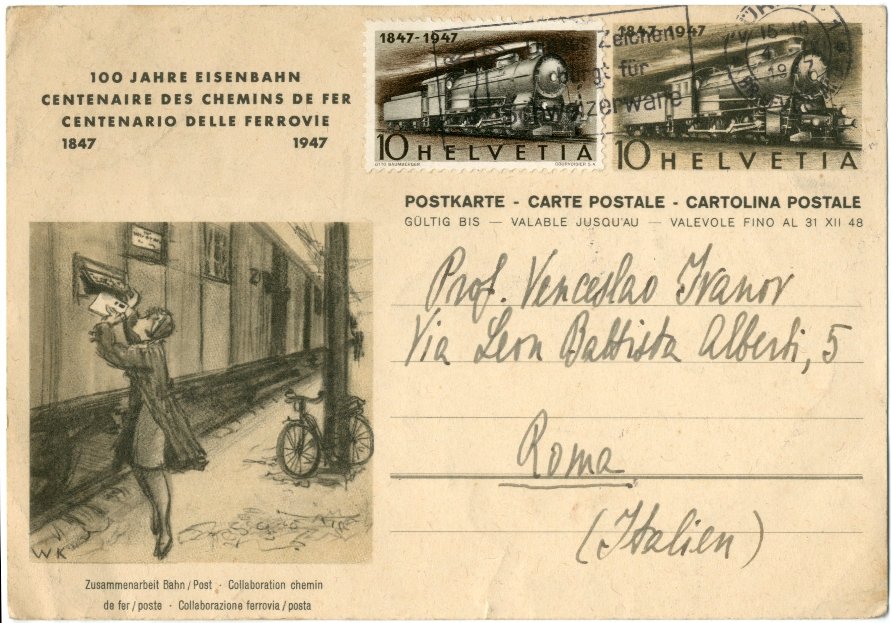 100 JAHRE EISENBAHN
CENTENAIRE DES CHEMINS DE FER
CENTENARIO DELLE FERROVIE
1847 1947
1847-1947
10 HELVETIA
OTTO BAUMBERGER COURVOISIER S.A.
1847-1947
10 HELVETIA
Zeichen
bürgt für
Schweizerware
POSTKARTE - CARTE POSTALE - CARTOLINA POSTALE
GÜLTIG BIS — VALABLE JUSQU'AU — VALEVOLE FINO AL 31 XII 48
Prof. Venceslao Ivanov
Via Leon Battista Alberti, 5
Roma
(Italien)
WK
Zusammenarbeit Bahn / Post · Collaboration chemin
de fer / poste · Collaborazione ferrovia / posta